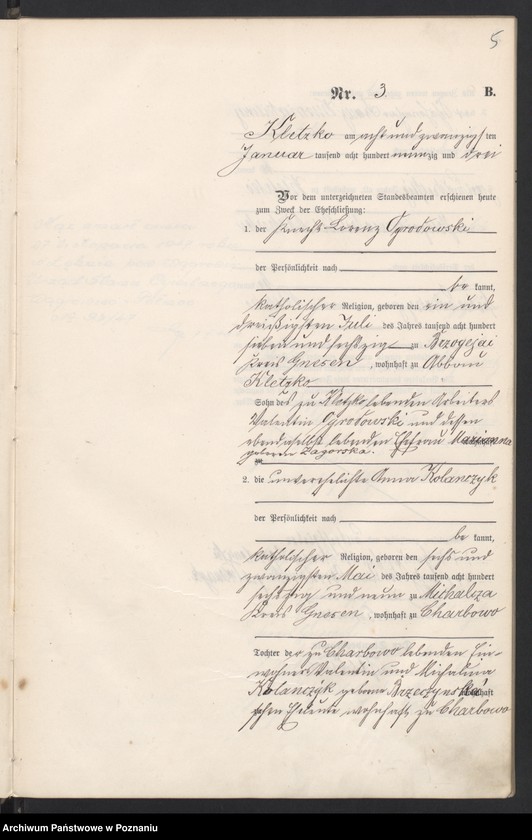 5
Nr. 3 B.
Kletzko am acht und zwanzigsten
Januar tausend acht hundert neunzig und drei
Vor dem unterzeichneten Standesbeamten erschienen heute
zum Zweck der Eheschließung:
1. der Knecht Lorenz Ogrodowski
der Persönlichkeit nach
be kannt,
katholischer Religion, geboren den ein und
dreißigsten Juli des Jahres tausend acht hundert
sieben und sechszig zu
Kreis Gnesen, wohnhaft zu Abbau
Kletzko
Sohn des zu Kletzko lebenden Arbeiters
Valentin Ogrodowski und dessen
ebendaselbst lebenden Ehefrau Marianna
geborene Zagorska.
2. die unverehelichte Anna Kolanczyk
der Persönlichkeit nach
be kannt,
katholischer Religion, geboren den sechs und
zwanzigsten Mai des Jahres tausend acht hundert
sechszig und neun zu Michalcza
Kreis Gnesen, wohnhaft zu Charbowo
Tochter der zu Charbowo lebenden Ein-
wohner Valentin und Michalina
Kolanczyk geborene
schen Eheleute wohnhaft zu Charbowo
Archiwum Państwowe w Poznaniu